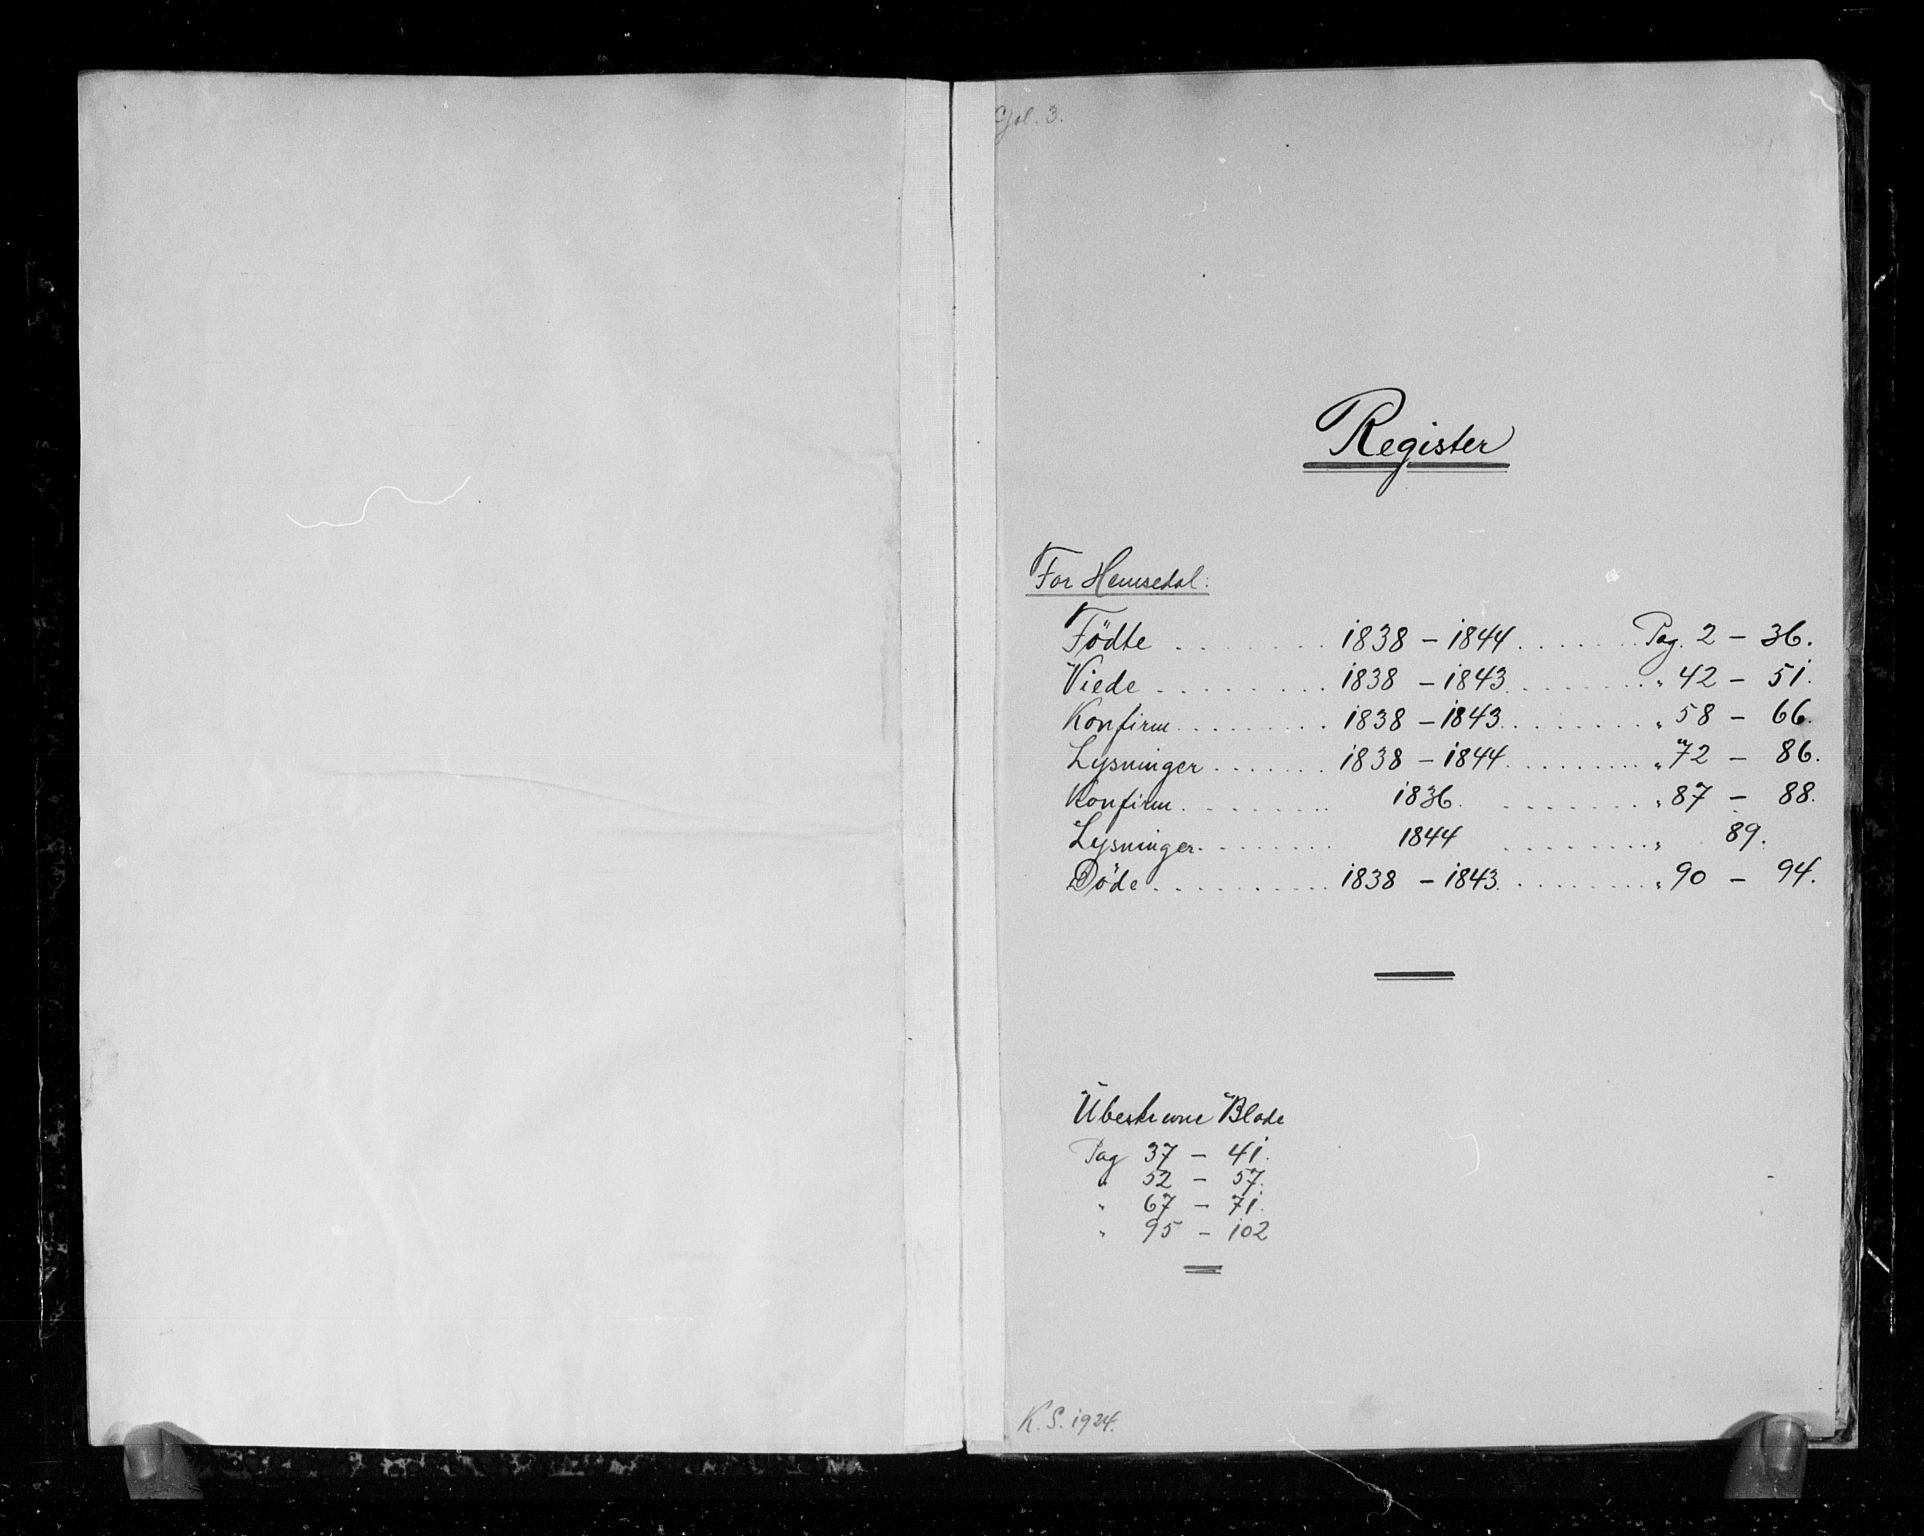 Gol. 3.
Register
For Hemsedal:
Födte . . . . . . . 1838 – 1844 . . . . . . . Pag. 2 – 36.
Viede . . . . . . . . . 1838 – 1843 . . . . . . . . . " 42 – 51.
Konfirm. . . . . . . . . 1838 – 1843 . . . . . . . . . " 58 – 66.
Lysninger . . . . . . . 1838 – 1844 . . . . . . . . . " 72 – 86.
Konfirm. . . . . . . . . 1836. . . . . . . . . " 87 – 88.
Lysninger. . . . . . . . 1844 . . . . . . . . . " 89.
Döde . . . . . . . . . . 1838 – 1843. . . . . . . . . " 90 – 94.
Übeskrevne Blade
Pag 37 – 41.
" 52 – 57.
" 67 – 71.
" 95 – 102
K. S. 1924.